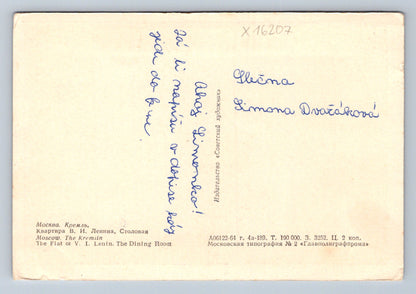 X 16207
Slečna
Simona Dvořáková
Ahoj Simonko!
Já ti napíšu v dopise kdy
Издательство «Советский художник»
Москва. Кремль.
Квартира В. И. Ленина, Столовая
Moscow. The Kremlin
The Flat of V. I. Lenin. The Dining Room
А06122-64 г. 4а-189. Т. 190 000. З. 3253. Ц. 2 коп.
Московская типография № 2 «Главполиграфпрома»